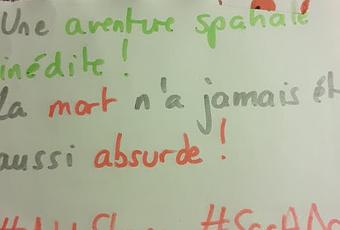 Une aventure spatiale
inédite !
La mort n'a jamais
aussi absurde !